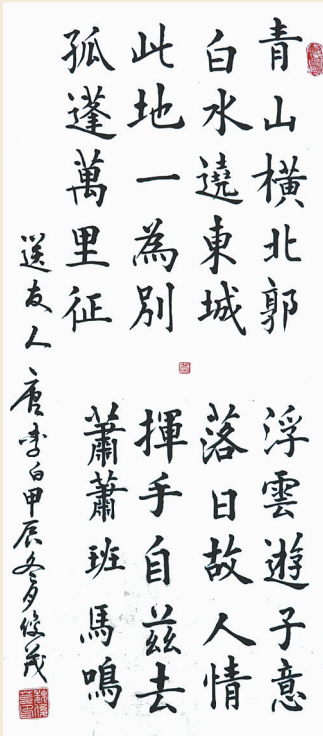 青山橫北郭
白水遶東城
此地一為別
孤蓬萬里征
浮雲遊子意
落日故人情
揮手自茲去
蕭蕭班馬鳴
送友人 唐李白甲辰冬月俊茂